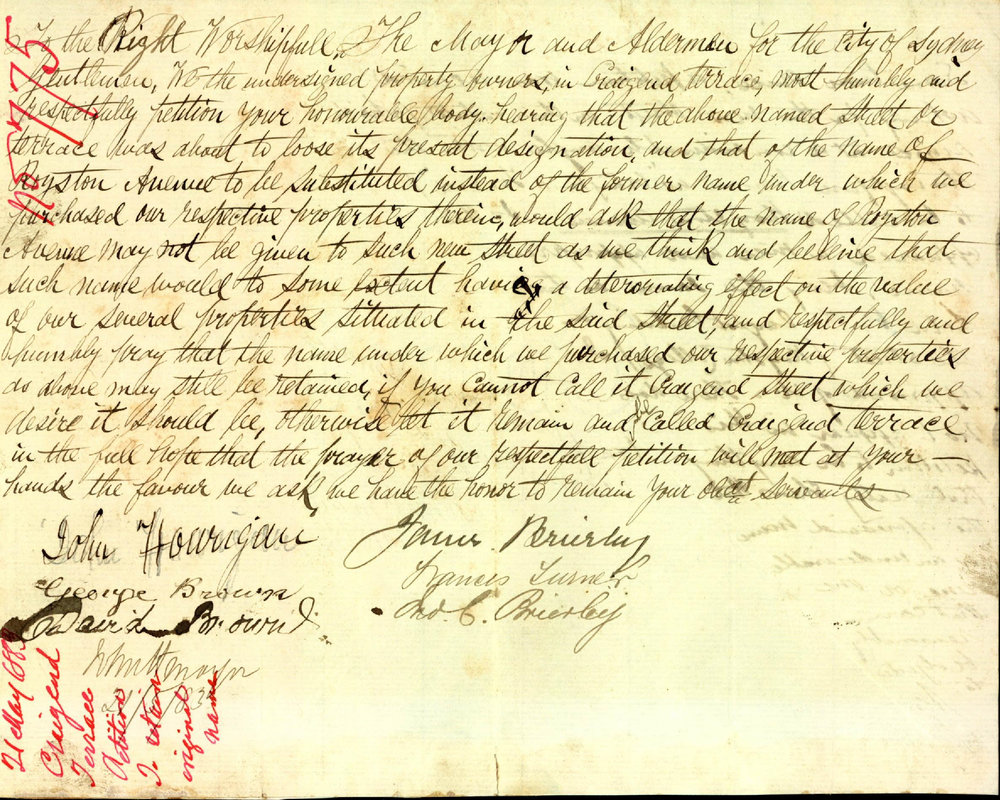 To the Right Worshipfull, The Mayor and Aldermen for the City of Sydney
Gentlemen, We the undersigned property owners, in Craigend terrace, most humbly and
respectfully petition your honourable body. hearing that the above named street or
terrace was about to loose its present designation, and that of the name of
Royston Avenue to be substituted instead of the former name under which we
purchased our respective properties therein, would ask that the name of Royston
Avenue may not be given to such new street as we think and believe that
such name would to some extent having a deteriorating effect on the value
of our several properties situated in the said street, and respectfully and
humbly pray that the name under which we purchased our respective properties
as above may still be retained, if you cannot call it Craigend Street which we
desire it should be, otherwise let it remain and be called Craigend terrace
in the full hope that the prayer of our respectfull petition will meet at your
hands the favour we ask we have the honor to remain your obedt servants
John Hourigan
James Brierley
George Brown
Francis Turner
David Brown
Jno. C. Brierley
21 May 83
Craigend
Terrace
Petition
To retain
original
name